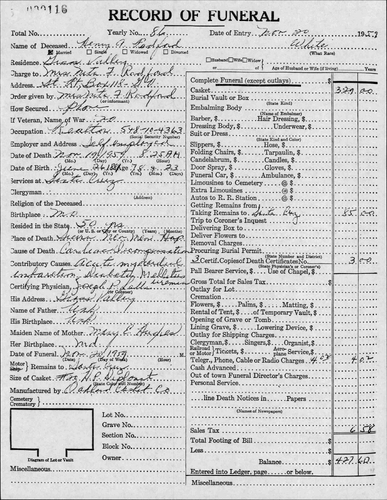 000116
RECORD OF FUNERAL
Total No. Yearly No. 86 Date of Entry Nov. 20 1959
Name of Deceased Henry A. Radford White
Married Single Widowed Divorced (What Race)
Residence Grass Valley Age of Husband or Wife (if living) Years
Charge to Mrs. Meta F. Radford
Address St. Rt. Box 118 - G.V.
Order given by Mrs. Meta F. Radford
How Secured Phone
If Veteran, Name of War no
Occupation Realtor 548-10-4363
Employer and Address Self employed
Date of Death Nov. 19 1959 8:25 P.M.
Date of Birth June 26 Age 78 4 23
Services at Santa Cruz
Clergyman
Religion of the Deceased
Birthplace Mo
Resided in the State 50 yrs
Place of Death
Cause of Death Cardiac Decompensation
Contributory Causes Acute myocardial
Certifying Physician Joseph P.
His Address Grass Valley
Name of Father
His Birthplace
Maiden Name of Mother Mary E. Hughes
Her Birthplace Ind
Date of Funeral Nov. 20 1959 M.
Remains to Santa Cruz
Size of Casket
Manufactured by Oakland Casket Co.
Cemetery
Crematory
Lot No.
Grave No.
Section No.
Block No.
Owner
Diagram of Lot or Vault
Miscellaneous
Complete Funeral (except outlays)
Casket 329 00
Burial Vault or Box
(State Kind)
Embalming Body
(State Kind)
Barber, Hair Dressing,
Dressing Body, Underwear,
Suit or Dress
(State Kind and Color)
Slippers, Hose,
Folding Chairs, Tarpaulin,
Candelabrum, Candles,
Door Spray, Gloves,
Funeral Car, Ambulance,
Limousines to Cemetery @ $
Extra Limousines @ $
Autos to R. R. Station @ $
Getting Remains from
Taking Remains to Santa Cruz 85 00
Trip to Coroner's Inquest
Delivering Box to
Deliver Flowers to
Removal Charges
Procuring Burial Permit
(State Number and District)
3 Certif. Copies of Death Certificates No. 3 00
(State Physician's or Coroner's)
Pall Bearer Service, Use of Chapel,
Gross Total for Sales Tax
Outlay for Lot
Cremation
Flowers, Palms, Matting,
Rental of Tent, of Temporary Vault,
Opening of Grave or Tomb
Lining Grave, Lowering Device,
Outlay for Shipping Charges
Clergyman, Singers, Organist,
Railroad or Motor Tickets, Aeroplane Service,
Telegr., Phone, Cable or Radio Charges 4.02
Cash Advanced
Out of town Funeral Director's Charges
Personal Service
line Death Notices in Papers
(Names of Newspapers)
Sales Tax 6 58
Total Footing of Bill
Less
Balance 427 60
Entered into Ledger, page or below.
Miscellaneous: